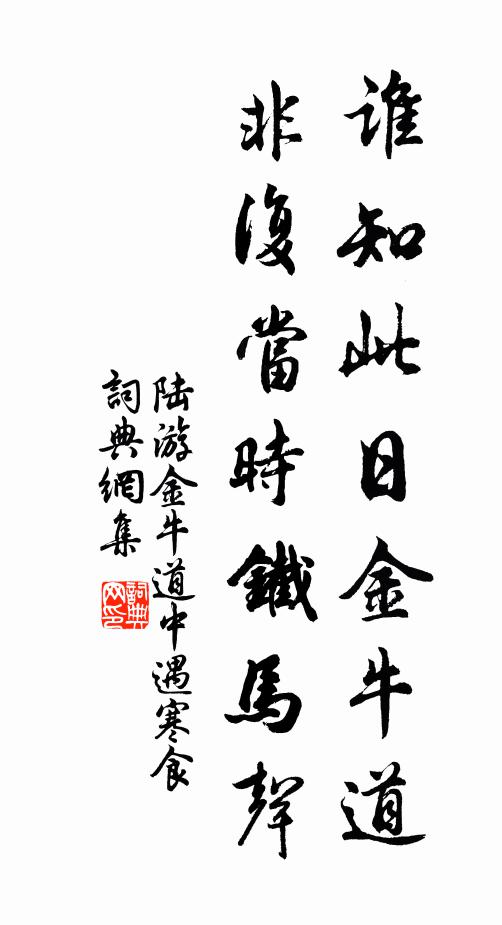 誰知此日金牛道
非復當時鐵馬聲
陆游金牛道中遇寒食
詞典網集
詞典网印